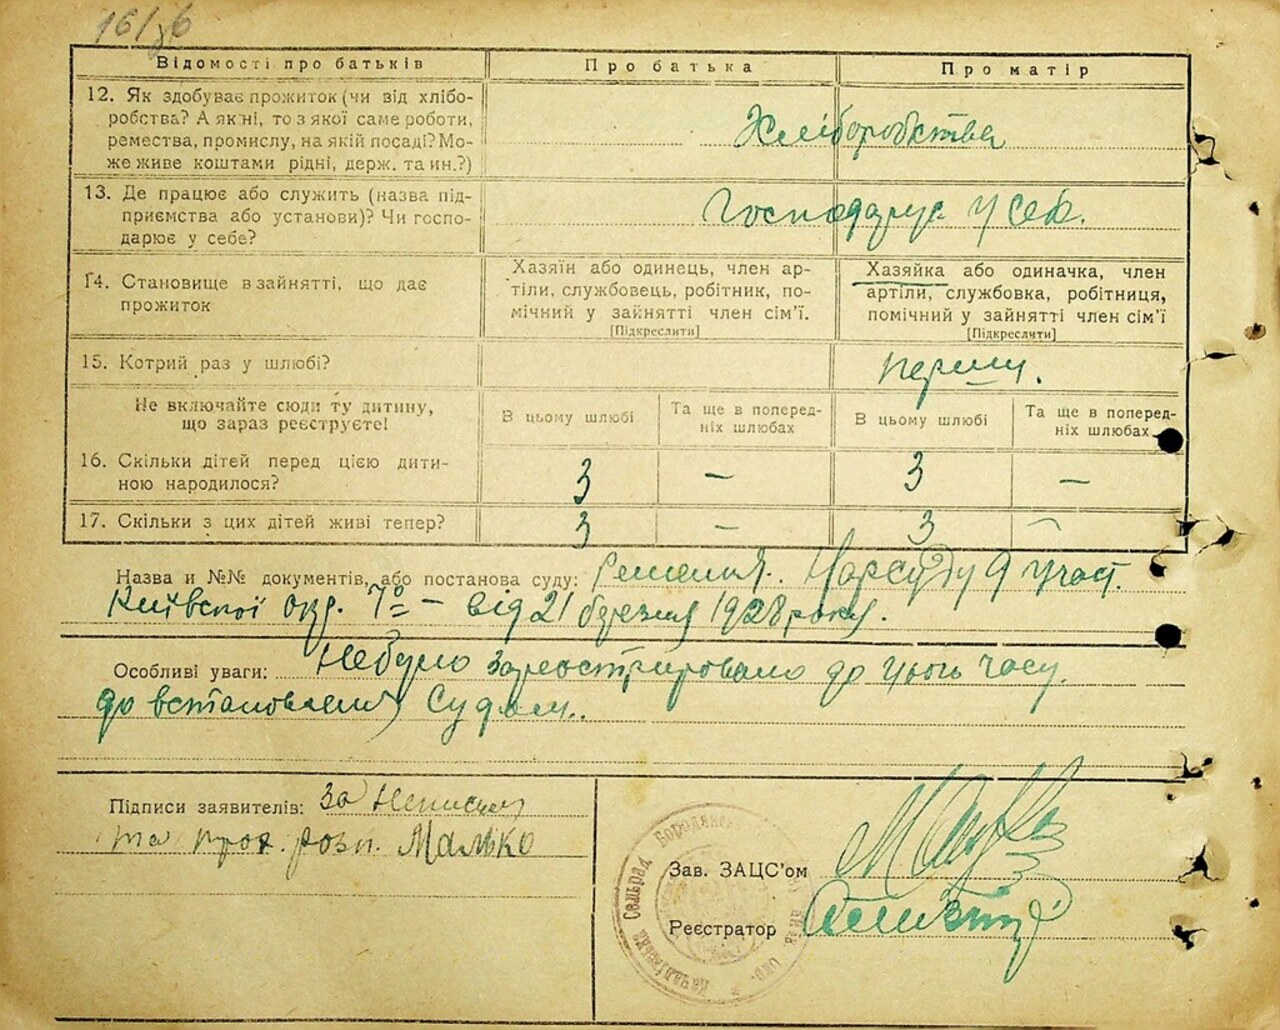 16/
Відомості про батьків Про батька Про матір
12. Як здобуває прожиток (чи від хлібо-
робства? А як ні, то з якої саме роботи,
ремества, промислу, на якій посаді? Мо-
же живе коштами рідні, держ. та ин.?)
Хліборобства
13. Де працює або служить (назва під-
приємства або установи)? Чи госпо-
дарює у себе?
Господарує у себе.
14. Становище в зайнятті, що дає
прожиток
Хазяїн або одинець, член ар-
тіли, службовець, робітник, по-
мічний у зайнятті член сім'ї.
[Підкреслити]
Хазяйка або одиначка, член
артіли, службовка, робітниця,
помічний у зайнятті член сім'ї
[Підкреслити]
15. Котрий раз у шлюбі?
перши.
Не включайте сюди ту дитину,
що зараз реєструєте!
В цьому шлюбі Та ще в поперед-
ніх шлюбах В цьому шлюбі Та ще в поперед-
ніх шлюбах
16. Скільки дітей перед цією дити-
ною народилося?
3 – 3 –
17. Скільки з цих дітей живі тепер? 3 – 3 –
Назва и №№ документів, або постанова суду: Решения. Нарсуду 9 участ.
Київської окр. 7º – від 21 березня 1928 року.
Особливі уваги: Небуло зареєстрировано до цього часу
до встановлення Судом..
Підписи заявителів: За неписьм
та прох. розп. Малько
Зав. ЗАЦС'ом
Реєстратор
Сельрад Бородянськ